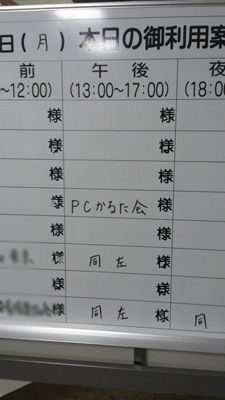 日(月) 本日の御利用案
前 午後 夜
~12:00) (13:00~17:00) (18:00
様 様
様 様
様 様
様 PCかるた会 様
様 様
様 同左 様
様 様
様 同左 様 同